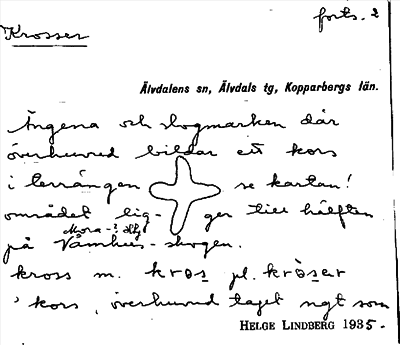 forts. 2
Krosser
Älvdalens sn, Älvdals tg, Kopparbergs län.
Ängena och slogmarken där
överhuvud bildar ett kors
i terrängen se kartan!
området lig- ger till hälften
Mora-?
på Våmhus-skogen.
kross m. kros pl. kròser
'kors, överhuvud taget ngt som
HELGE LINDBERG 1935.